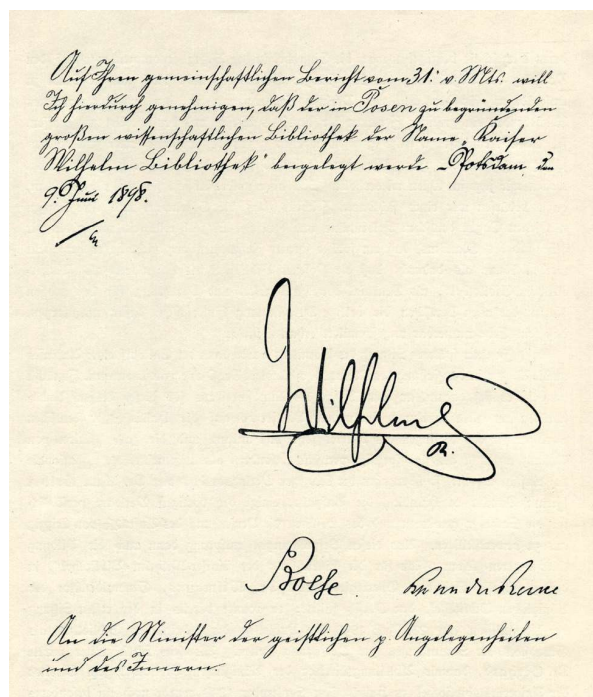 Auf Ihren gemeinschaftlichen Bericht vom 31. v. Mts. will
Ich hierdurch genehmigen, daß der in Posen zu begründenden
großen wissenschaftlichen Bibliothek der Name „Kaiser
Wilhelm Bibliothek“ beigelegt werde – Potsdam, den
9. Juni 1898.
Wilhelm
R.
Bosse. von der Recke
An die Minister der geistlichen p. Angelegenheiten
und des Innern.